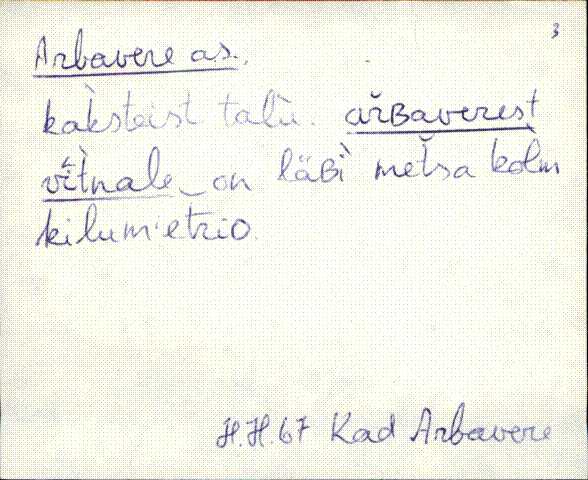 3
Arbavere as.
kàksteist talù. ař̆ʙaverest
vìtnale on läʙì metsa kolm
kilumietrio.
H.H.67 Kad Arbavere